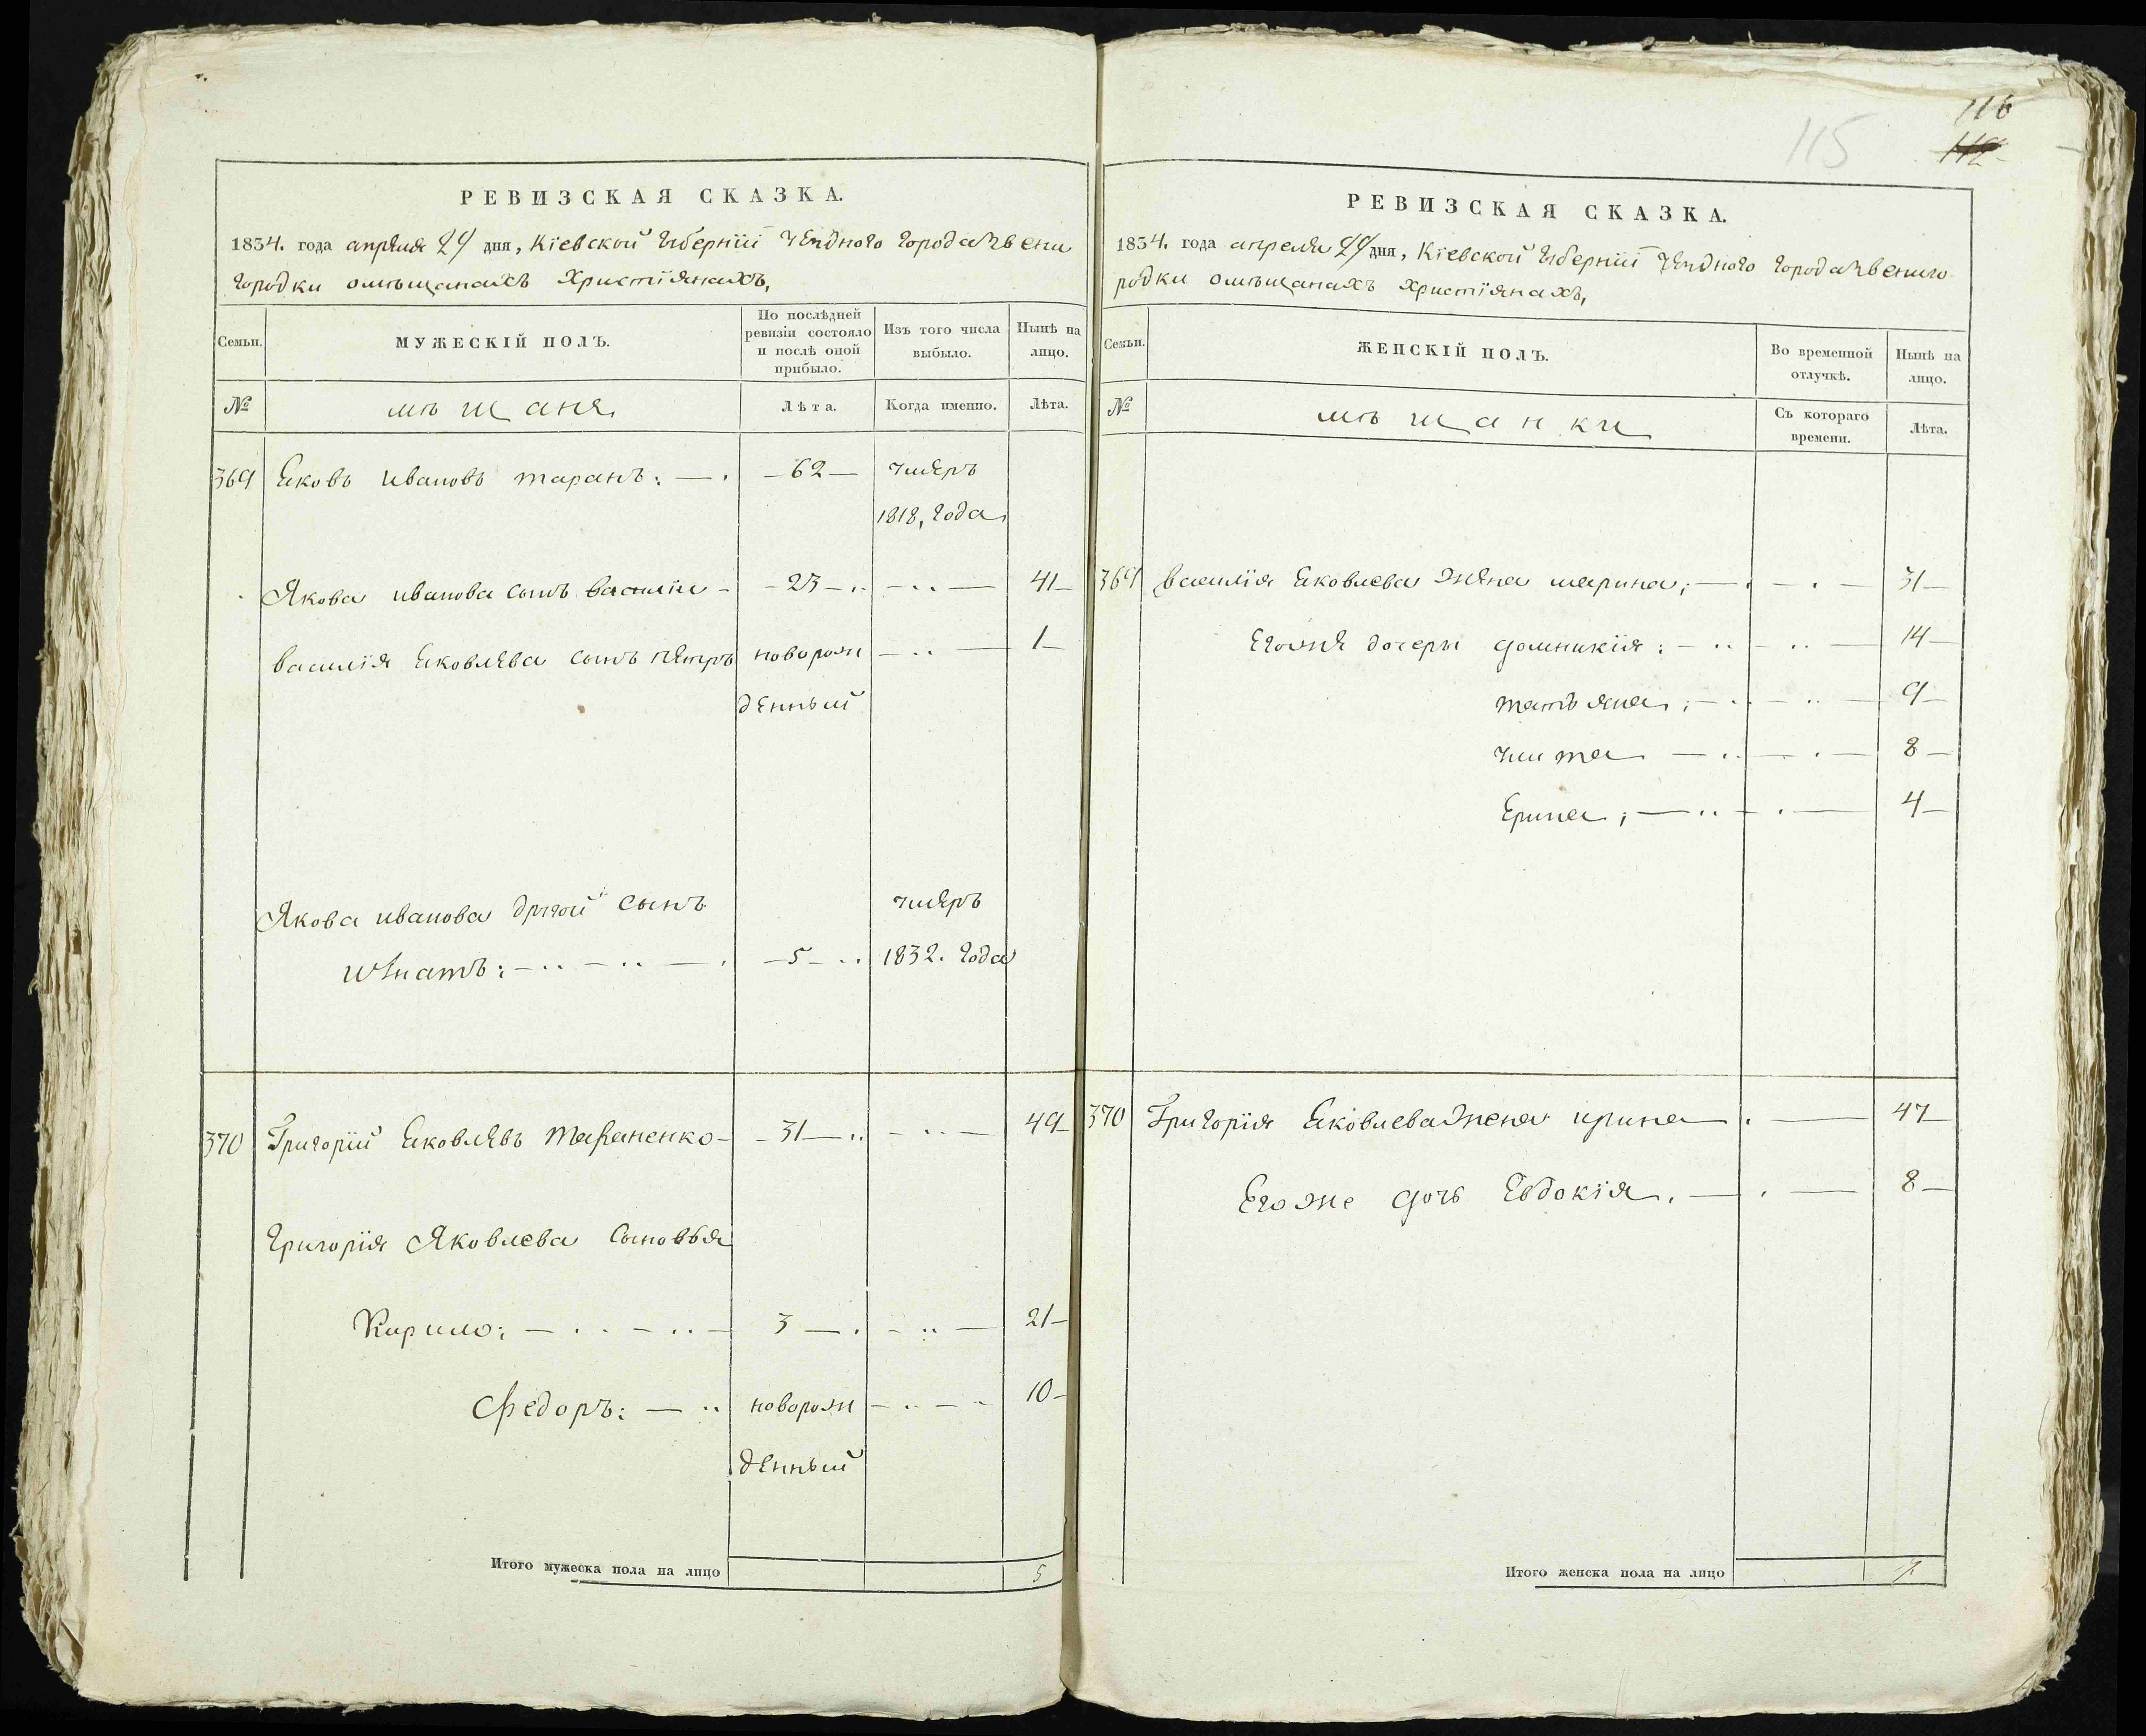 116
115
РЕВИЗСКАЯ СКАЗКА.
1834. года апреля 24 дня, Кіевской Губерніи уезднаго города Звени
городки омѣщанахъ христіянахъ,
Семьи.
МУЖЕСКІЙ ПОЛЪ.
По послѣдней ревизіи состояло и послѣ оной прибыло.
Изъ того числа выбыло.
Нынѣ на лицо.
№
мѣщане
Лѣта.
Когда именно.
Лѣта.
369 Яковъ Ивановъ таранъ: — 62 — умеръ
1818, года
Якова иванова сынъ василій — 23 — 41 —
василія Яковлева сынъ петръ новорож — 1 —
денный
Якова иванова другой сынъ умеръ
игнатъ: — 5 — 1832. года
370 Григорій Яковлевъ тараненко — 31 — 49
Григорія Яковлева сыновья
Кирило: — 3 — 21 —
Федоръ: — новорож — 10 —
денный
Итого мужеска пола на лицо 5
РЕВИЗСКАЯ СКАЗКА.
1834. года апреля 24 дня, Кіевской Губерніи уезднаго города Звениго
родки омѣщанахъ христіянахъ,
Семьи.
ЖЕНСКІЙ ПОЛЪ.
Во временной отлучкѣ.
Нынѣ на лицо.
№
мѣщанки
Съ котораго времени.
Лѣта.
369 василія Яковлева жена марина; — 31 —
Егоже дочери домникія: — 14 —
татьяна; — 9 —
улита — 8 —
Ерина; — 4 —
370 Григорія Яковлева жена ирина — 47 —
Егоже дочь Евдокія. — 8 —
Итого женска пола на лицо 7